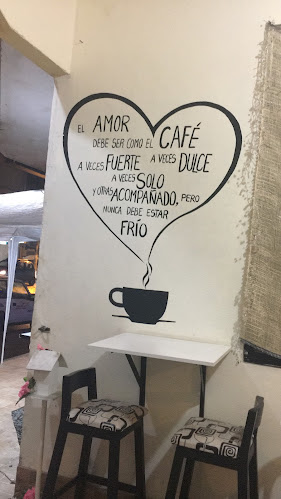 EL AMOR
DEBE SER COMO EL CAFÉ
A VECES FUERTE A VECES DULCE
A VECES SOLO
Y OTRAS ACOMPAÑADO, PERO
NUNCA DEBE ESTAR
FRÍO